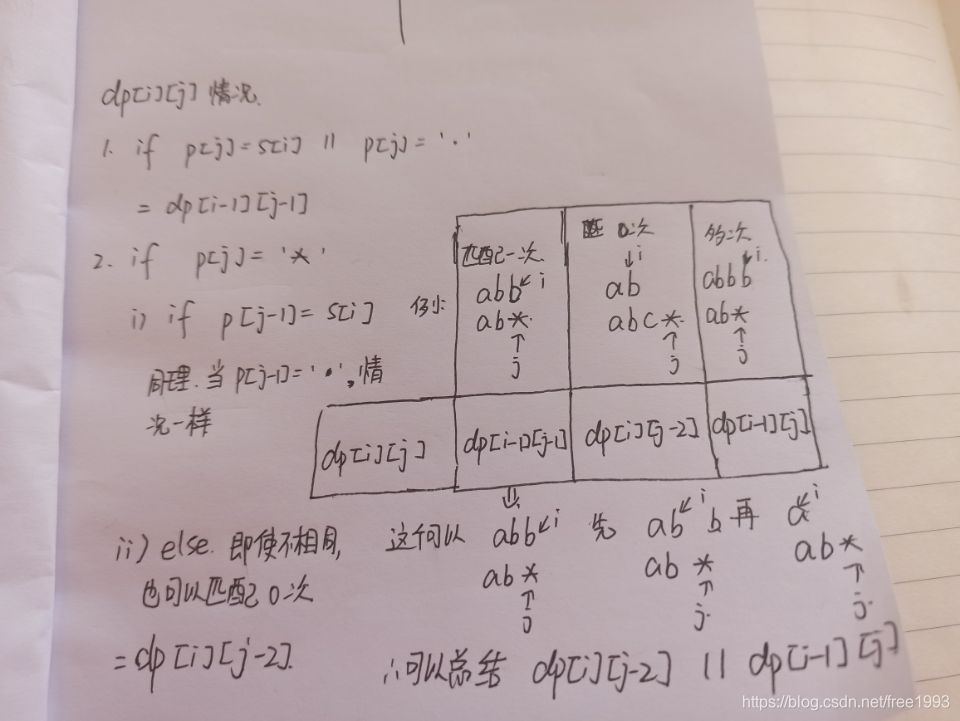 dp[i][j] 情况.
1. if p[j]=s[i] || p[j]='.'
= dp[i-1][j-1]
2. if p[j]='*'
i) if p[j-1]=s[i]
同理.当p[j-1]='.',情
况一样
例如:
匹配一次
abb↙i
ab*
↑
j
匹配 0次
↓i
ab
abc*
↑
j
多次
↙i.
abbb
ab*
↑
j
dp[i][j]
dp[i-1][j-1]
dp[i][j-2]
dp[i-1][j]
⇓
ii) else. 即使不相同,
也可以匹配0次
= dp[i][j-2].
这个可以 abb↙i 先 ab↙i b 再 a↙i
ab* ab* ab*
↑ ↑ ↑
j j. j.
∴可以总结 dp[i][j-2] || dp[i-1][j]
https://blog.csdn.net/free1993